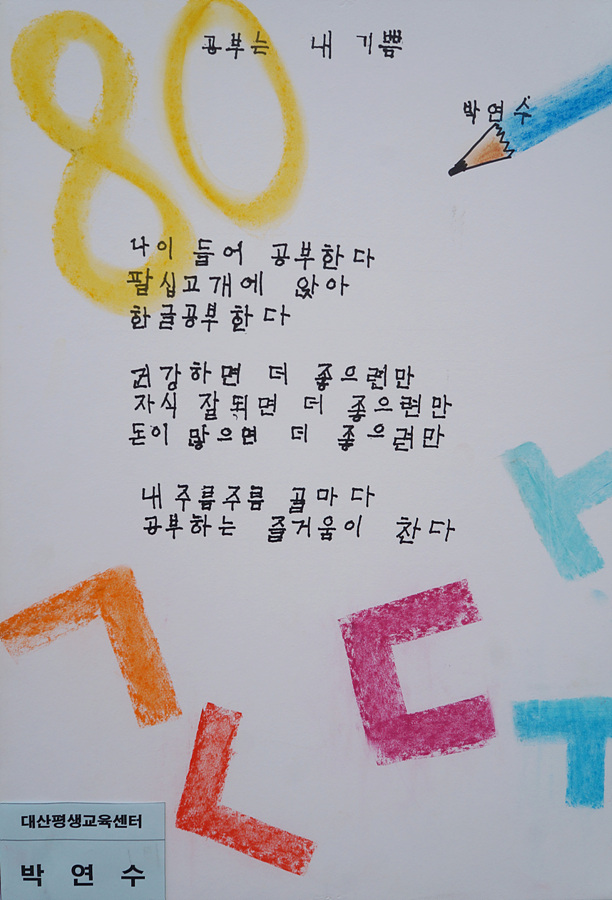 80
공부는 내 기쁨
박연수
나이 들어 공부한다
팔십고개에 앉아
한글공부한다
건강하면 더 좋으련만
자식 잘 되면 더 좋으련만
돈이 많으면 더 좋으련만
내 주름주름 골마다
공부하는 즐거움이 찬다
ㅏ
ㄱ ㄷ
ㄴ ㅜ
대산평생교육센터
박 연 수